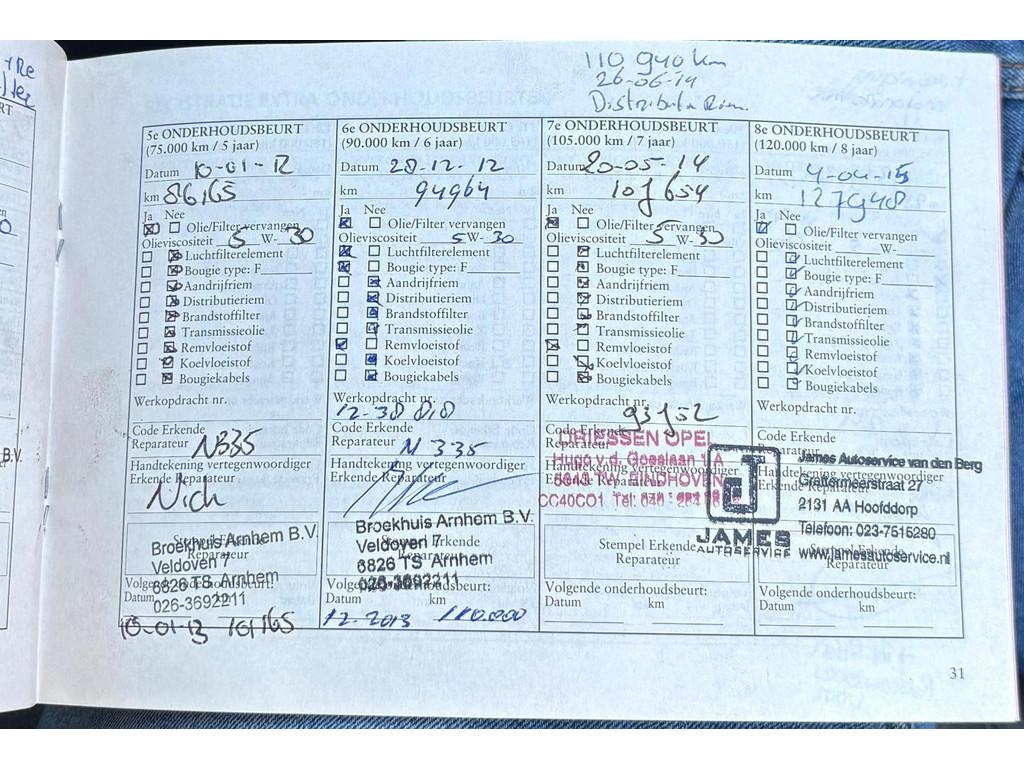 110 940 km
26-06-14
5e ONDERHOUDSBEURT
(75.000 km / 5 jaar)
Datum 10-01-12
km 86165
Ja Nee
Olie/Filter vervangen
Olieviscositeit 5 W-30
Luchtfilterelement
Bougie type: F
Aandrijfriem
Distributieriem
Brandstoffilter
Transmissieolie
Remvloeistof
Koelvloeistof
Bougiekabels
Werkopdracht nr.
Code Erkende
Reparateur NB35
Handtekening vertegenwoordiger
Erkende Reparateur
Nich
Stempel Erkende
Reparateur
Broekhuis Arnhem B.V.
Veldoven 7
6826 TS Arnhem
026-3692211
Volgende onderhoudsbeurt:
Datum km
10-01-13 101165
6e ONDERHOUDSBEURT
(90.000 km / 6 jaar)
Datum 28-12-12
km 94964
Ja Nee
Olie/Filter vervangen
Olieviscositeit 5 W-30
Luchtfilterelement
Bougie type: F
Aandrijfriem
Distributieriem
Brandstoffilter
Transmissieolie
Remvloeistof
Koelvloeistof
Bougiekabels
Werkopdracht nr.
12-38 818
Code Erkende
Reparateur N 335
Handtekening vertegenwoordiger
Erkende Reparateur
Stempel Erkende
Reparateur
Broekhuis Arnhem B.V.
Veldoven 7
6826 TS Arnhem
026-3692211
Volgende onderhoudsbeurt:
Datum km
12-2013 110.000
7e ONDERHOUDSBEURT
(105.000 km / 7 jaar)
Datum 20-05-14
km
Ja Nee
Olie/Filter vervangen
Olieviscositeit 5 W-30
Luchtfilterelement
Bougie type: F
Aandrijfriem
Distributieriem
Brandstoffilter
Transmissieolie
Remvloeistof
Koelvloeistof
Bougiekabels
Werkopdracht nr.
Code Erkende
Reparateur
DRIESSEN OPEL
Hugo v.d. Goeslaan 1A
TW EINDHOVEN
Handtekening vertegenwoordiger
Erkende Reparateur
Stempel Erkende
Reparateur
Volgende onderhoudsbeurt:
Datum km
8e ONDERHOUDSBEURT
(120.000 km / 8 jaar)
Datum 4-04-15
km 127948
Ja Nee
Olie/Filter vervangen
Olieviscositeit W-
Luchtfilterelement
Bougie type: F
Aandrijfriem
Distributieriem
Brandstoffilter
Transmissieolie
Remvloeistof
Koelvloeistof
Bougiekabels
Werkopdracht nr.
Code Erkende
Reparateur
Handtekening vertegenwoordiger
Erkende Reparateur
JAMES
AUTOSERVICE
James Autoservice van den Berg
Graftermeerstraat 27
2131 AA Hoofddorp
Telefoon: 023-7515280
www.jamesautoservice.nl
Stempel Erkende
Reparateur
Volgende onderhoudsbeurt:
Datum km
31
B.V.